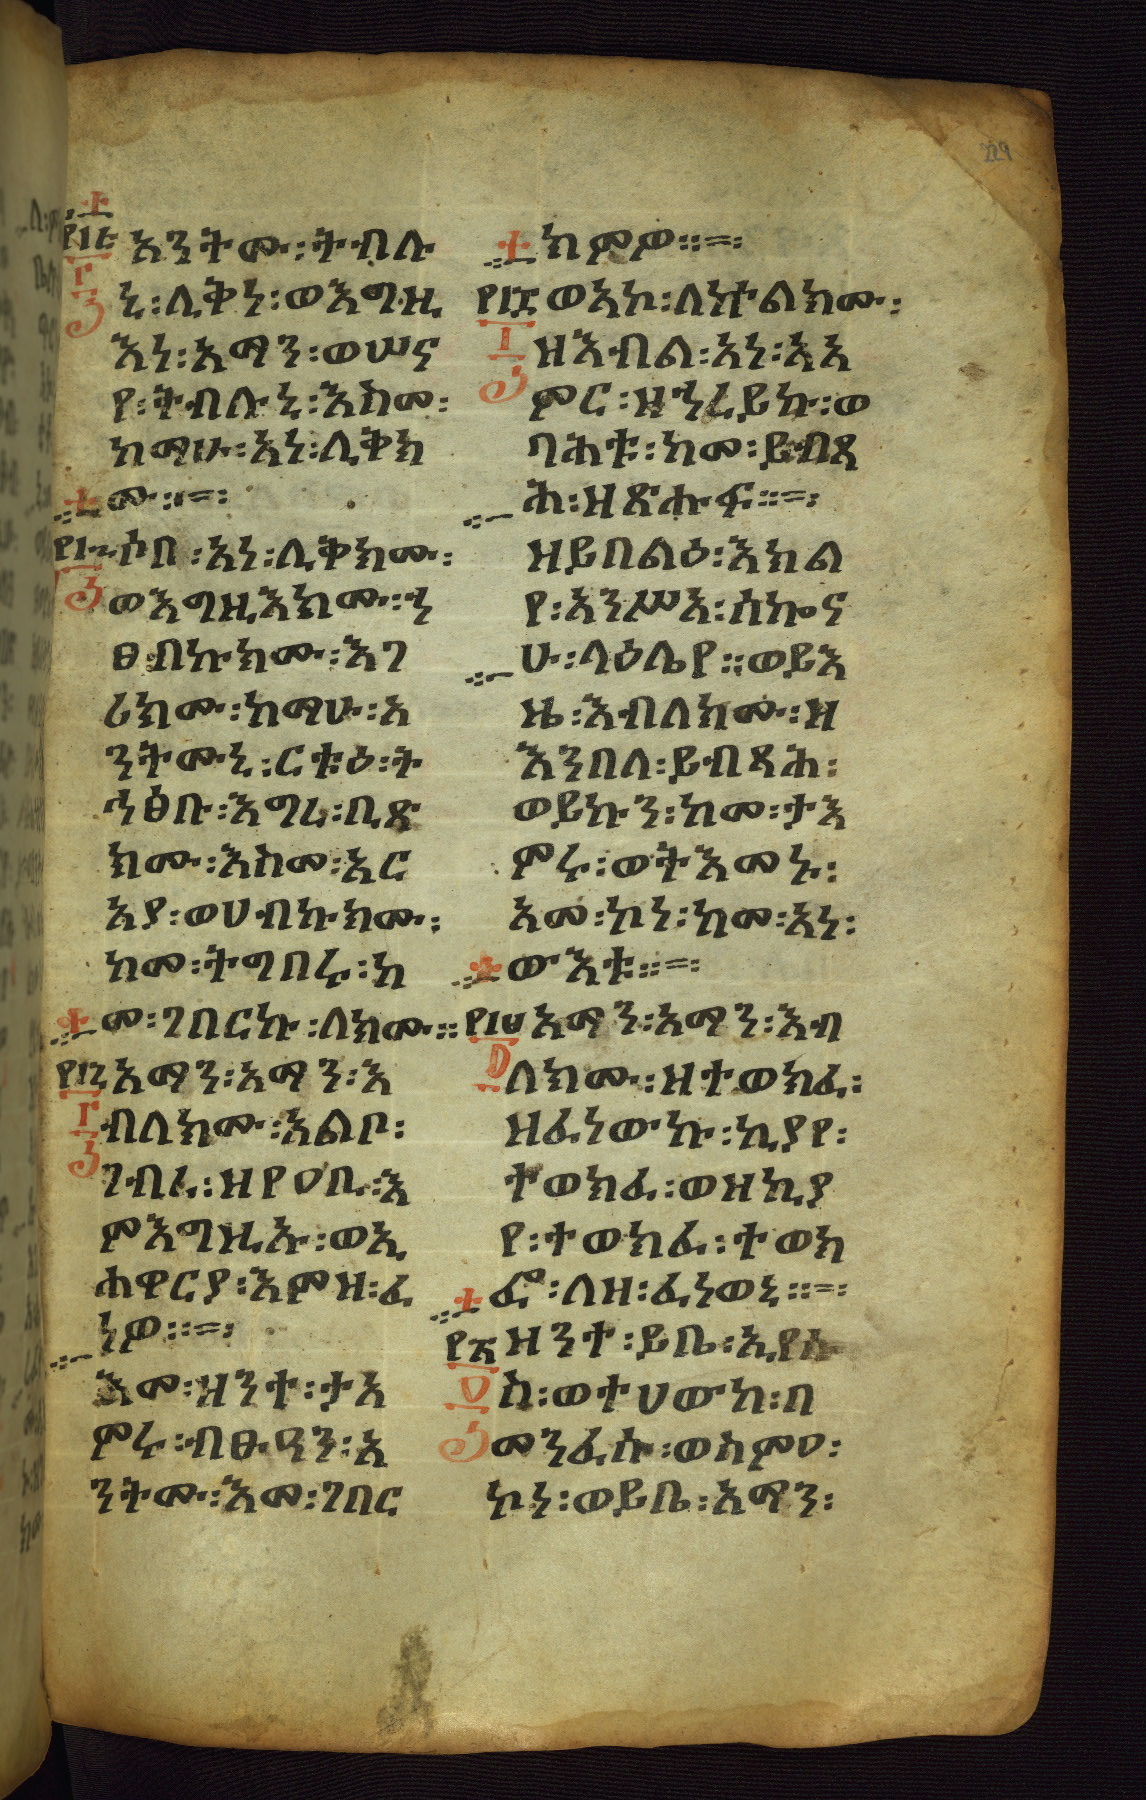 229
፻፲፭ አንትሙ፡ትብሉ
ኒ፡ሊቅነ፡ወእግዚ
እነ፡አማን፡ወሠና
የ፡ትብሉኒ፡እስመ፡
ከማሁ፡አነ፡ሊቅክ
ሙ።
፻፲፮ ሶበ፡አነ፡ሊቅክሙ፡
ወእግዚእክሙ፡ኀ
ፀብኩክሙ፡እገ
ሪክሙ፡ከማሁ፡አ
ንትሙኒ፡ርቱዕ፡ት
ኅፅቡ፡እግረ፡ቢጽ
ክሙ፡እስመ፡አር
አያ፡ወሀብኩክሙ፡
ከመ፡ትግበሩ፡ከ
መ፡ገበርኩ፡ለክሙ።
፻፲፯ አማን፡አማን፡እ
ብለክሙ፡አልቦ፡
ገብረ፡ዘየዐቢ፡እ
ምእግዚኡ፡ወኢ
ሐዋርያ፡እምዘ፡ፈ
ነዎ።
እመ፡ዘንተ፡ታአ
ምሩ፡ብፁዓን፡አ
ንትሙ፡እመ፡ገበር
ክምዎ።
፻፲፰ ወአኮ፡ለኵልክሙ፡
ዘእብል፡አነ፡አአ
ምር፡ዘኀረይኩ፡ወ
ባሕቱ፡ከመ፡ይብጻ
ሕ፡ዘጽሑፍ።
ዘይበልዕ፡እክል
የ፡አንሥአ፡ሰኰና
ሁ፡ላዕሌየ።ወይእ
ዜ፡እብለክሙ፡ዘ
እንበለ፡ይብጻሕ፡
ወይኩን፡ከመ፡ታእ
ምሩ፡ወትእመኑ፡
አመ፡ኮነ፡ከመ፡አነ፡
ውእቱ።
፻፲፱ አማን፡አማን፡እብ
ለክሙ፡ዘተወክፈ፡
ዘፈነውኩ፡ኪያየ፡
ተወክፈ፡ወዘኪያ
የ፡ተወክፈ፡ተወክ
ፎ፡ለዘ፡ፈነወኒ።
፻፳ ዘንተ፡ይቤ፡ኢየሱ
ስ፡ወተሀውከ፡በ
መንፈሱ፡ወስምዐ፡
ኮነ፡ወይቤ፡አማን፡